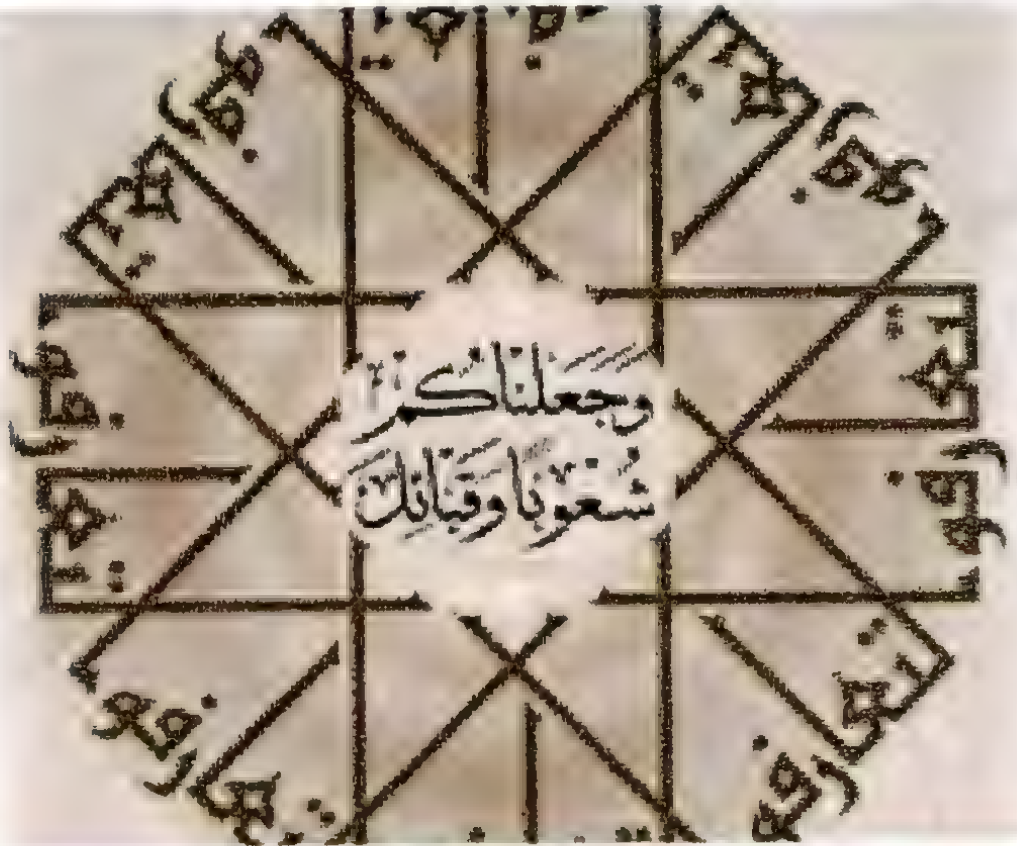 وجعلناكم
شعوبا وقبائل
لتعارفوا